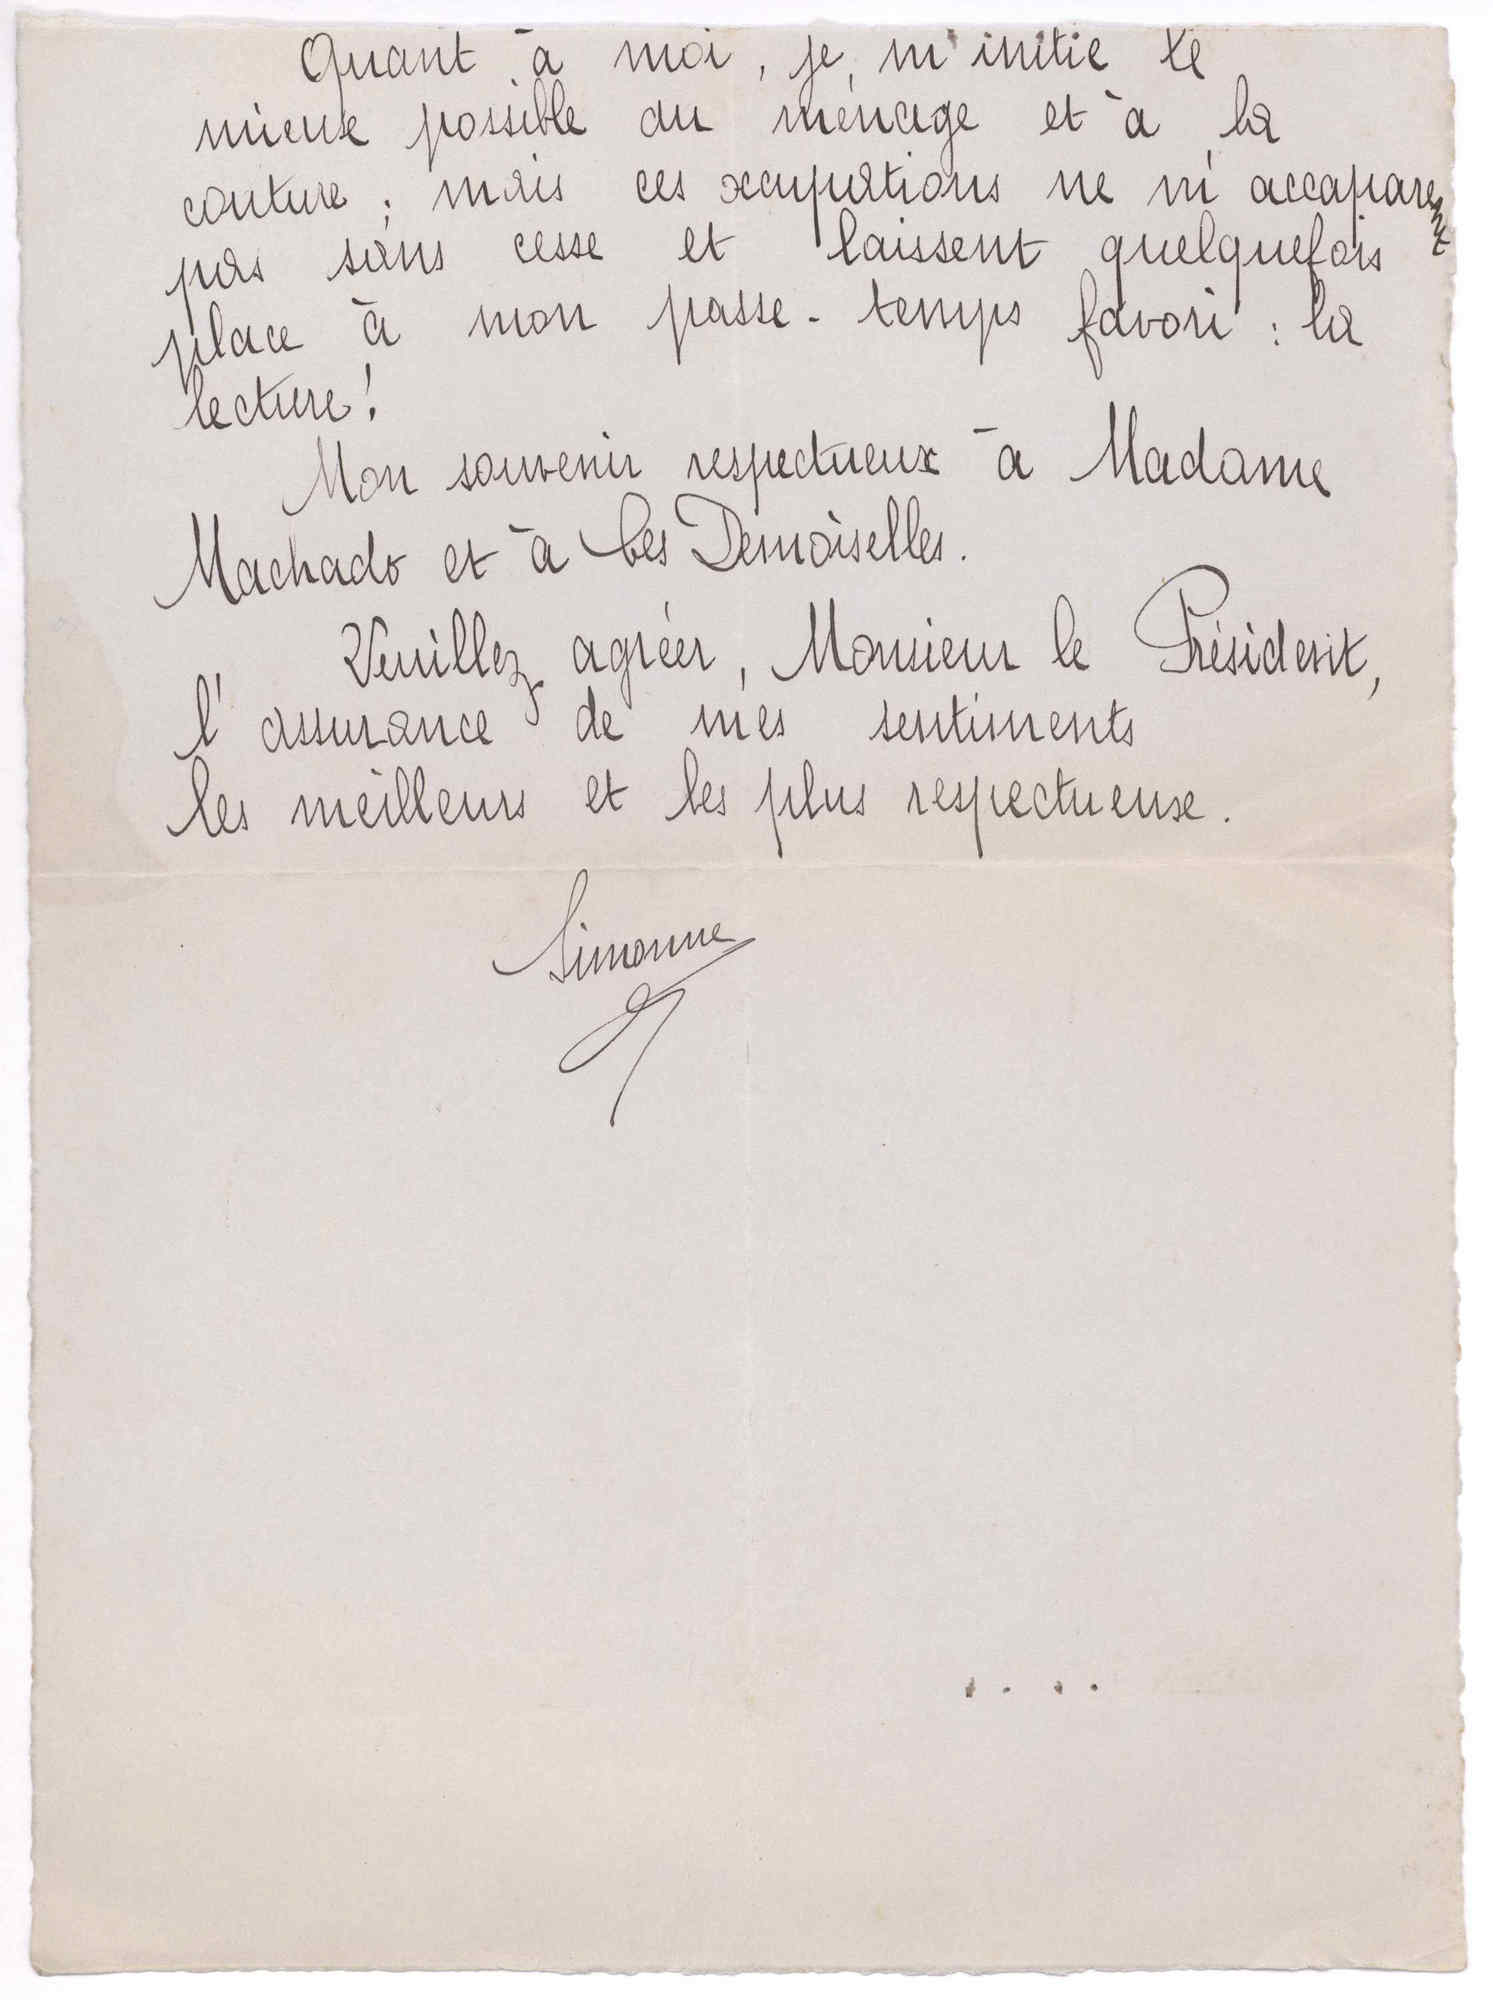 Quant à moi, je m'initie le
mieux possible au ménage et à la
couture ; mais ces occupations ne m'accaparent
pas sans cesse et laissent quelquefois
place à mon passe-temps favori : la
lecture !
Mon souvenir respectueux à Madame
Machado et à Ses Demoiselles.
Veuillez agréer, Monsieur le Président,
l'assurance de mes sentiments
les meilleurs et les plus respectueuse.
Simonne